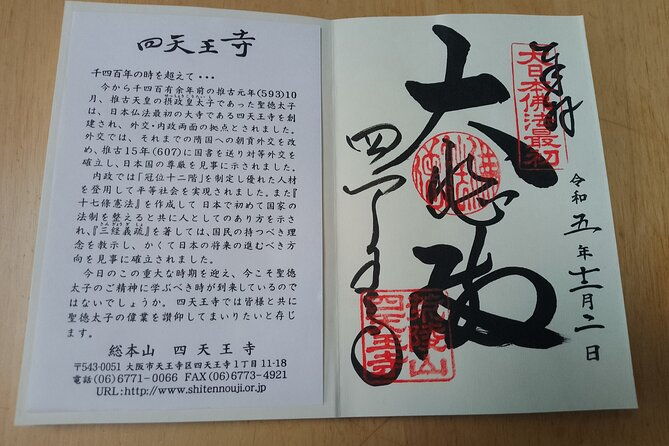 四天王寺
千四百年の時を超えて・・・
今から千四百有余年前の推古元年(593)10
月、推古天皇の摂政皇太子であった聖徳太子
は、日本仏法最初の大寺である四天王寺を創
建され、外交・内政両面の拠点とされました。
外交では、それまでの隋国への朝貢外交を改
め、推古15年(607)に国書を送り対等外交を
確立し、日本国の尊厳を見事に示されました。
内政では「冠位十二階」を制定し優れた人材
を登用して平等社会を実現されました。また『
十七條憲法』を作成して日本で初めて国家の
法制を整えると共に人としてのあり方を示さ
れ、『三経義疏』を著しては、国民の持つべき理
念を教示し、かくて日本の将来の進むべき方
向を見事に確立されました。
今日のこの重大な時期を迎え、今こそ聖徳
太子のご精神に学ぶべき時が到来しているので
はないでしょうか。四天王寺では皆様と共に
聖徳太子の偉業を讃仰してまいりたいと存じ
ます。
総本山 四天王寺
〒543-0051 大阪市天王寺区四天王寺1丁目11-18
電話(06)6771-0066 FAX(06)6773-4921
URL:http://www.shitennouji.or.jp
奉拝
大日本佛法最初
令和五年十二月二日
大悲殿
四天王寺
四天王寺